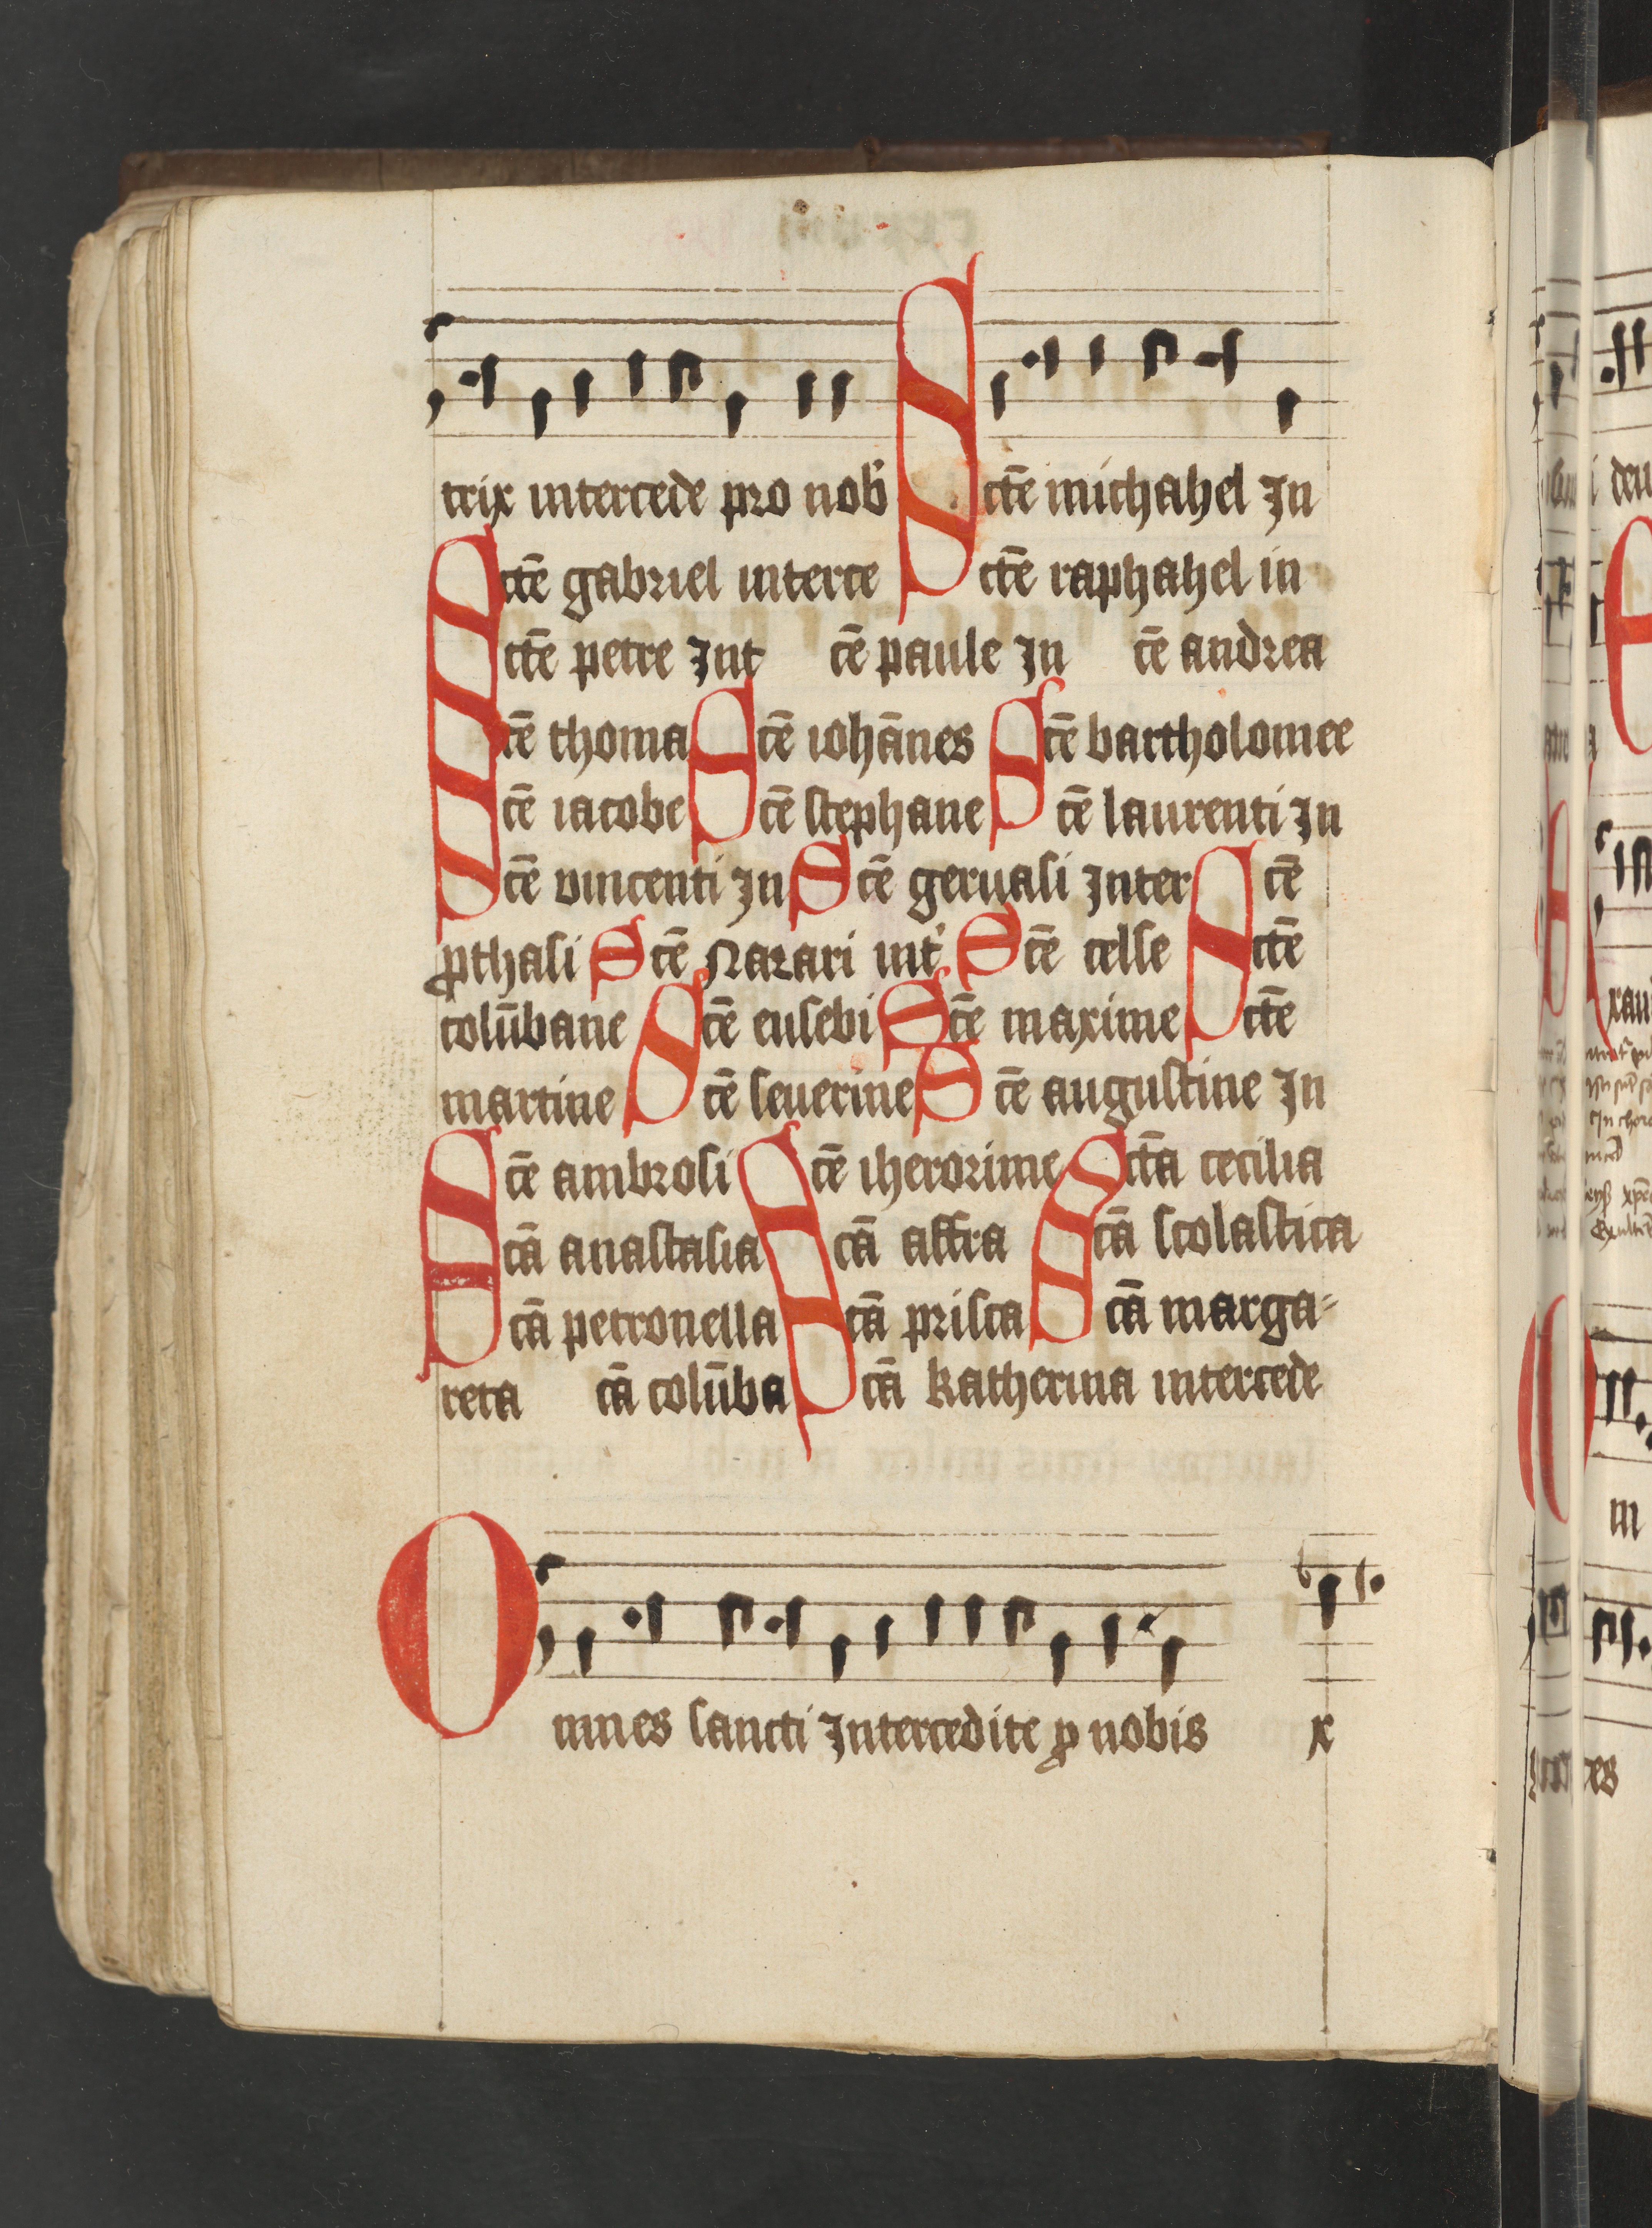 trix intercede pro nob̕ Sctē michahel In
Sctē gabriel interce Sctē raphahel in
Sctē petre Int cē paule In cē andrea
Scē thoma Scē iohānes Scē bartholomee
Scē iacobe Scē stephane Scē laurenti In
Scē vincenti In Scē geruasi Inter Scē
ꝓthasi Scē Nazari int̕ Scē celse Sctē
colūbane Scē eusebi Scē maxime Sctē
martine Scē seuerine Scē augustine In
Scē ambrosi Scē iheronime Sctā cecilia
Scā anastasia Scā affra Scā scolastica
Scā petronella Scā prisca Scā marga-
reta cā colūba Scā katherina intercede
Omnes sancti Intercedite ꝓ nobis x